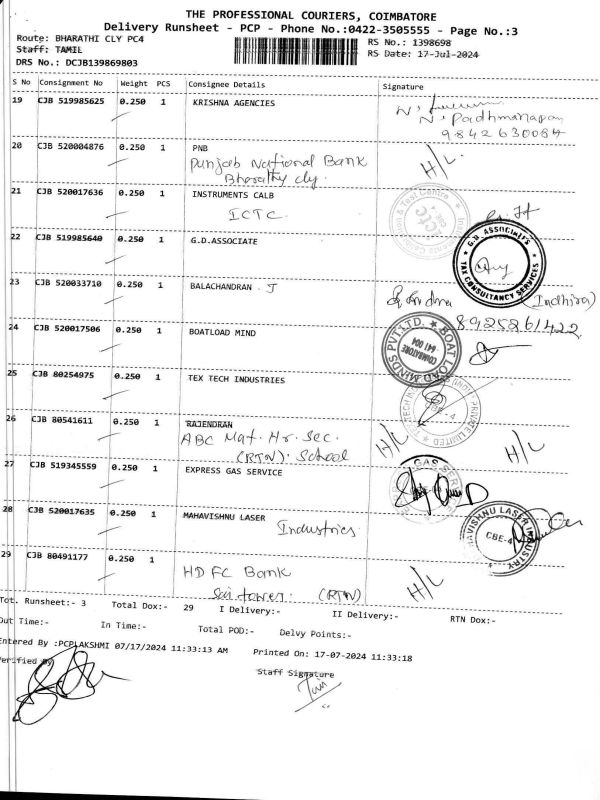 THE PROFESSIONAL COURIERS, COIMBATORE
Delivery Runsheet - PCP - Phone No.:0422-3505555 - Page No.:3
Route: BHARATHI CLY PC4
RS No.: 1398698
Staff: TAMIL
RS Date: 17-Jul-2024
DRS No.: DCJB139869803
S No Consignment No Weight PCS Consignee Details Signature
19 CJB 519985625 0.250 1 KRISHNA AGENCIES
N. Padhmanapan
9842630084
20 CJB 520004876 0.250 1 PNB
Punjab National Bank H/L.
Bharathy cly.
21 CJB 520017636 0.250 1 INSTRUMENTS CALB
ICTC.
22 CJB 519985640 0.250 1 G.D.ASSOCIATE
G.D. ASSOCIATES
TAX CONSULTANCY SERVICES
23 CJB 520033710 0.250 1 BALACHANDRAN . J
(Indhira)
8925261422
24 CJB 520017506 0.250 1 BOATLOAD MIND
BOAT LOAD MINDS PVT.LTD.
COIMBATORE
641 004
25 CJB 80254975 0.250 1 TEX TECH INDUSTRIES
PRIVATE LIMITED
CBE-4
26 CJB 80541611 0.250 1 RAJENDRAN
ABC Mat. Hr. Sec. H/L H/L
(RTN). School
27 CJB 519345559 0.250 1 EXPRESS GAS SERVICE
GAS
28 CJB 520017635 0.250 1 MAHAVISHNU LASER
Industries
MAHAVISHNU LASER INDUSTRY
CBE-4
29 CJB 80491177 0.250 1
HDFC Bank H/L
Sai towers. (RTN)
Tot. Runsheet:- 3 Total Dox:- 29 I Delivery:- II Delivery:- RTN Dox:-
Out Time:- In Time:- Total POD:- Delvy Points:-
Entered By :PCPLAKSHMI 07/17/2024 11:33:13 AM Printed On: 17-07-2024 11:33:18
Verified By
Staff Signature